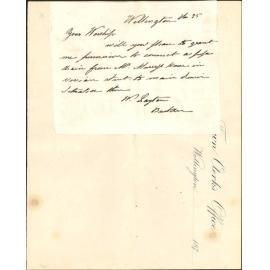 Wellington 25
Your Worship
will you please to grant
me permission to connect a pipe
drain from Mr Murrys House in
street to main drain
W. Layton
Builder
Town Clerk's Office,
Wellington,
187